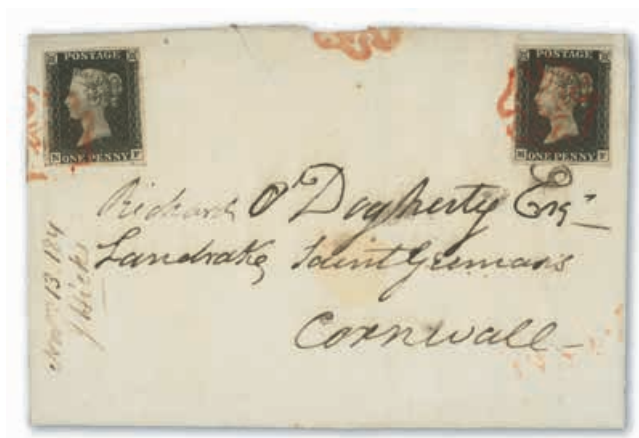 POSTAGE
ONE PENNY
POSTAGE
ONE PENNY
Richard O'Dogherty Esqr
Landrake Saint Germans
Cornwall
Novr 13 184
J Hicks